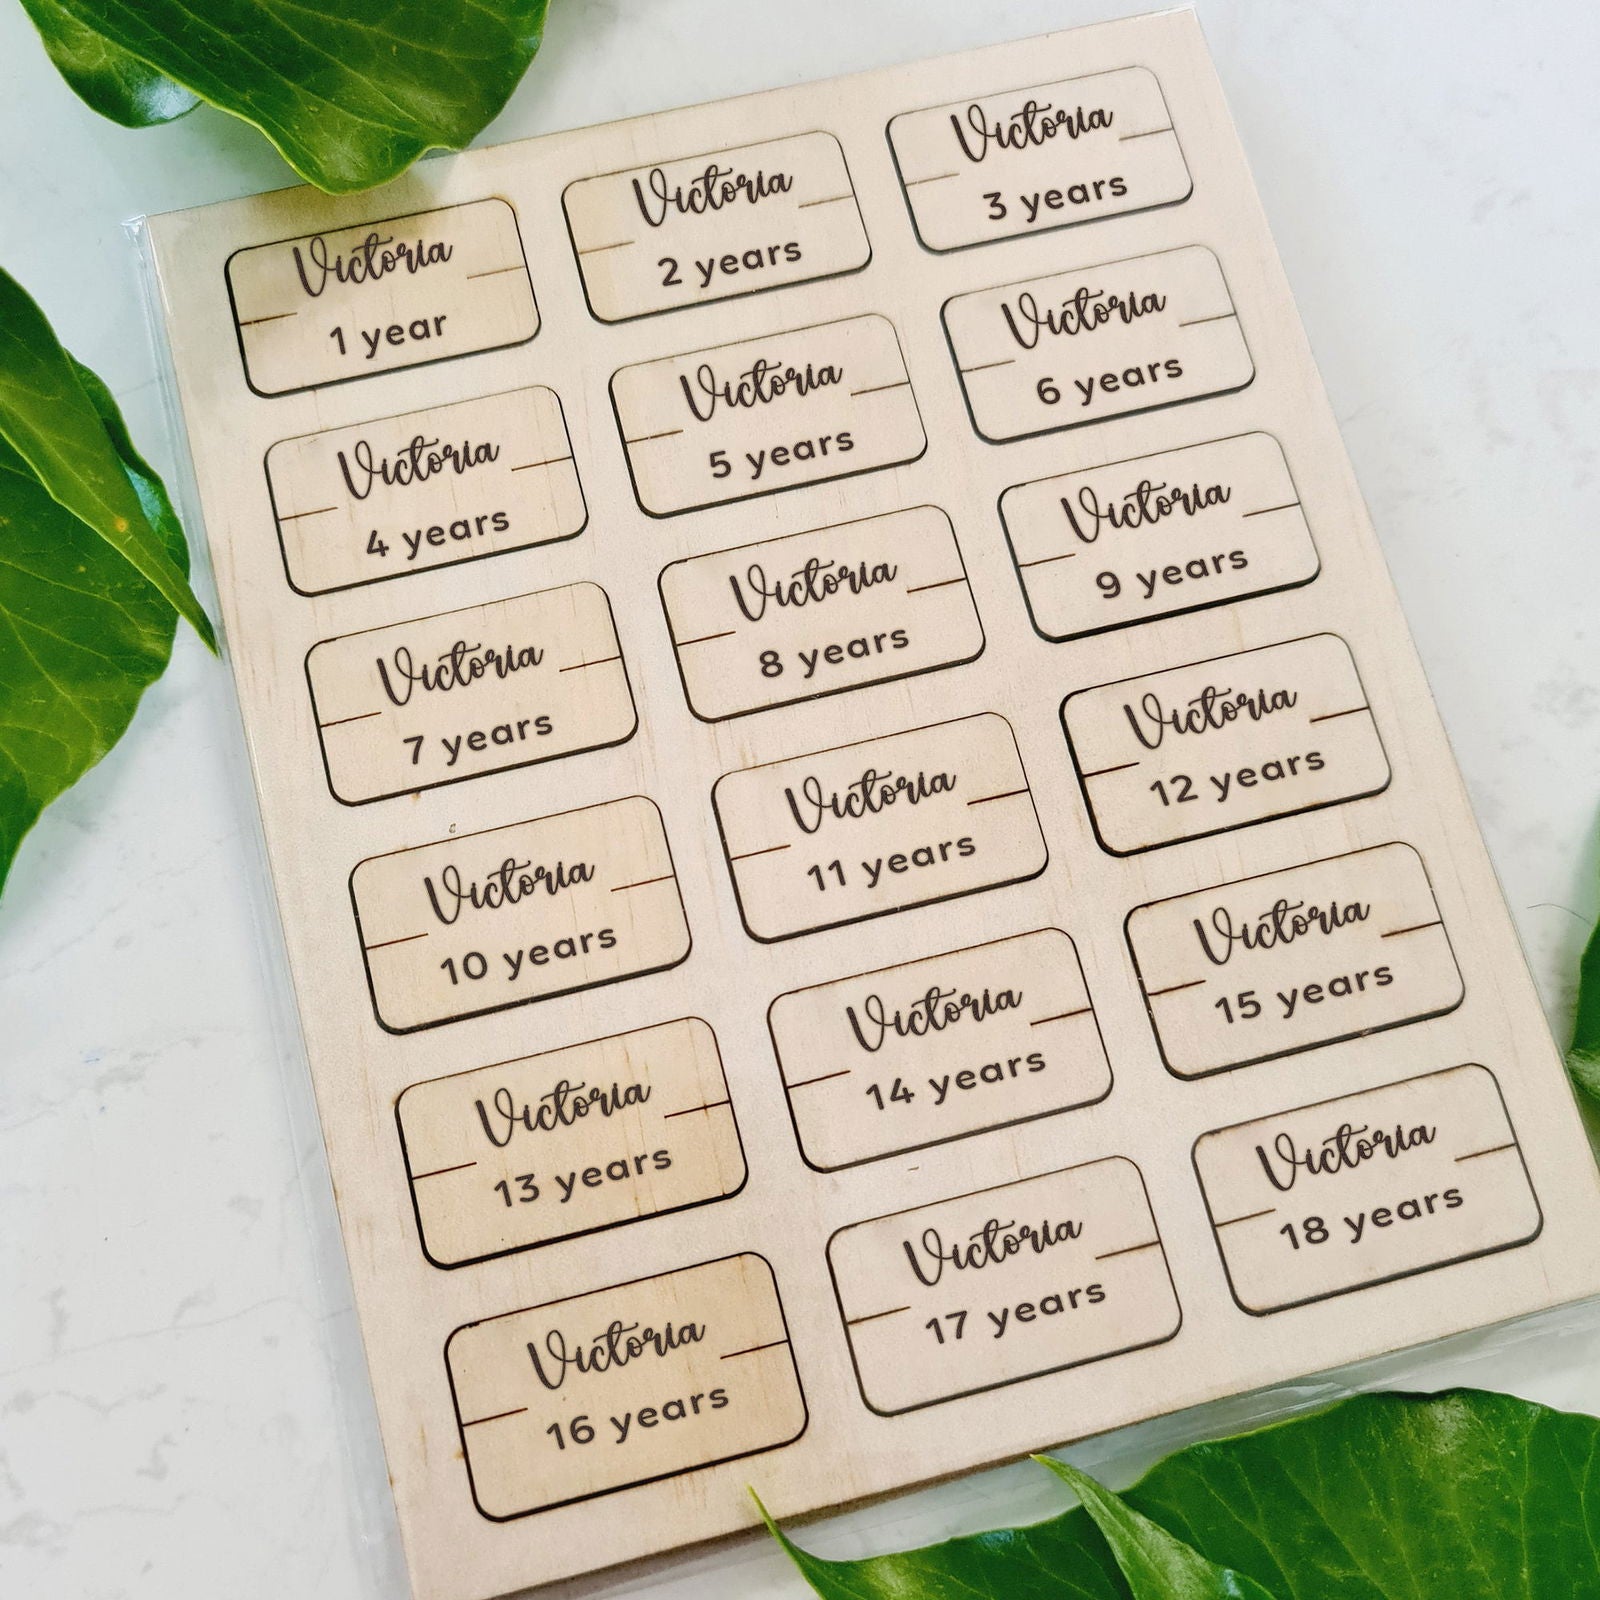 Victoria
1 year
Victoria
2 years
Victoria
3 years
Victoria
4 years
Victoria
5 years
Victoria
6 years
Victoria
7 years
Victoria
8 years
Victoria
9 years
Victoria
10 years
Victoria
11 years
Victoria
12 years
Victoria
13 years
Victoria
14 years
Victoria
15 years
Victoria
16 years
Victoria
17 years
Victoria
18 years